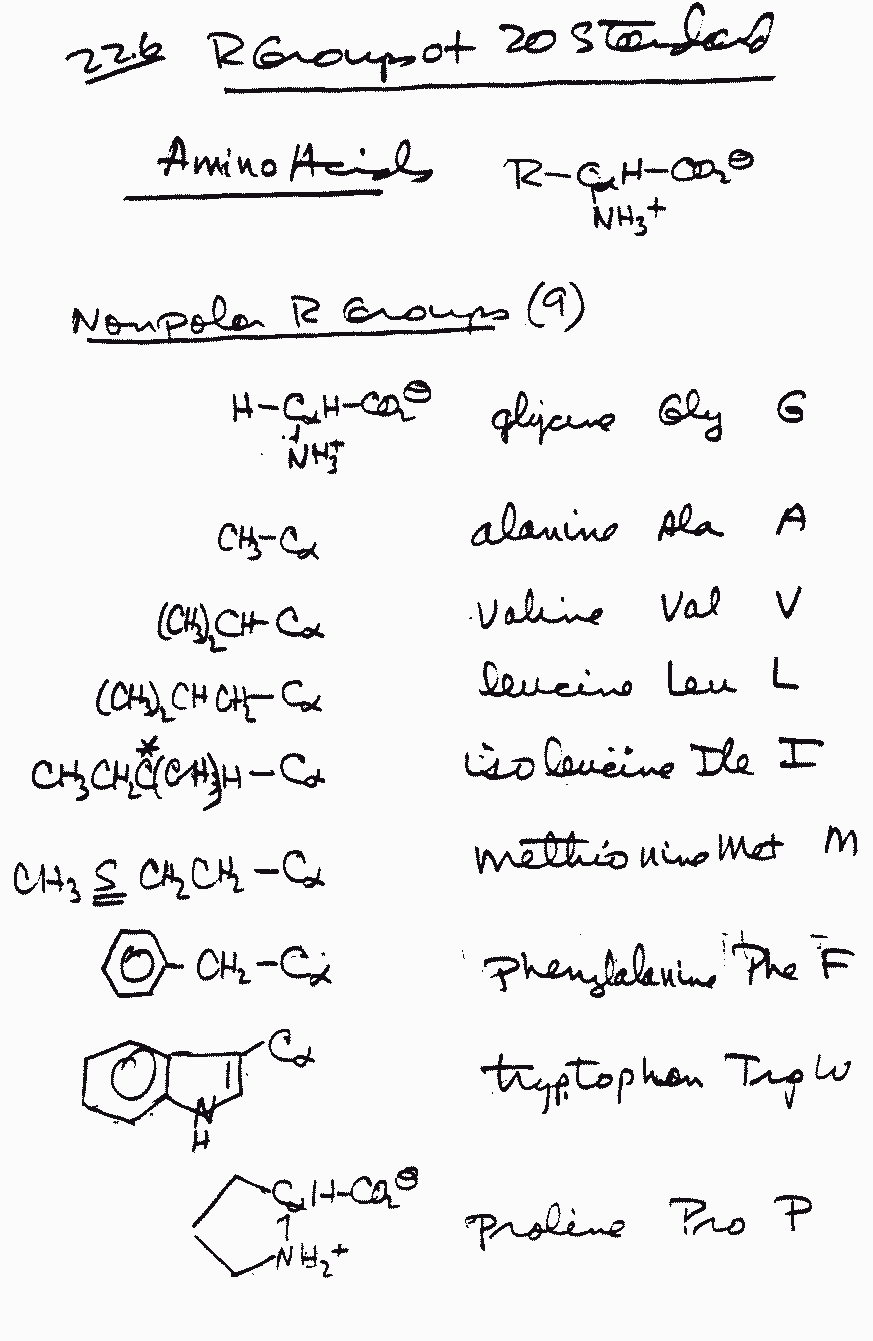 22.6 R Groups of 20 Standard
Amino Acids R-CαH-CO₂⊖
NH₃⁺
Nonpolar R Groups (9)
H-CαH-CO₂⊖ glycine Gly G
NH₃⁺
CH₃-Cα alanine Ala A
(CH₃)₂CH-Cα valine Val V
(CH₃)₂CHCH₂-Cα leucine Leu L
*
CH₃CH₂C(CH₃)H-Cα isoleucine Ile I
CH₃SCH₂CH₂-Cα methionine Met M
CH₂-Cα phenylalanine Phe F
Cα
tryptophan Trp W
N
H
CαH-CO₂⊖
proline Pro P
NH₂⁺